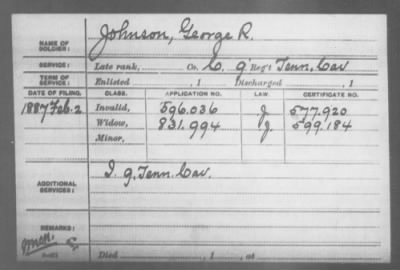 NAME OF SOLDIER: Johnson, George R.
SERVICE: Late rank, Co. C. 9 Reg't Tenn. Cav
TERM OF SERVICE: Enlisted , 1 Discharged , 1
DATE OF FILING. CLASS. APPLICATION NO. LAW. CERTIFICATE NO.
1887 Feb. 2 Invalid, 596.036 J. 577.920
Widow, 831.994 J. 599.184
Minor,
ADDITIONAL SERVICES: I. 9. Tenn. Cav.
REMARKS:
Died , 1 , at